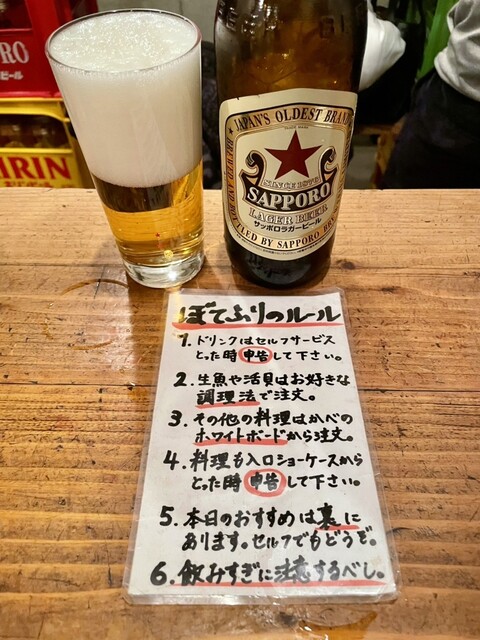 SAPPORO
ビール
KIRIN
JAPAN'S OLDEST BRAND
SINCE 1876
SAPPORO
LAGER BEER
サッポロラガービール
ぼてふりのルール
1. ドリンクはセルフサービス
とった時申告して下さい。
2. 生魚や活貝はお好きな
調理法で注文。
3. その他の料理はかべの
ホワイトボードから注文。
4. 料理も入口ショーケースから
とった時申告して下さい。
5. 本日のおすすめは裏に
あります。セルフでもどうぞ。
6. 飲みすぎに注意するべし。